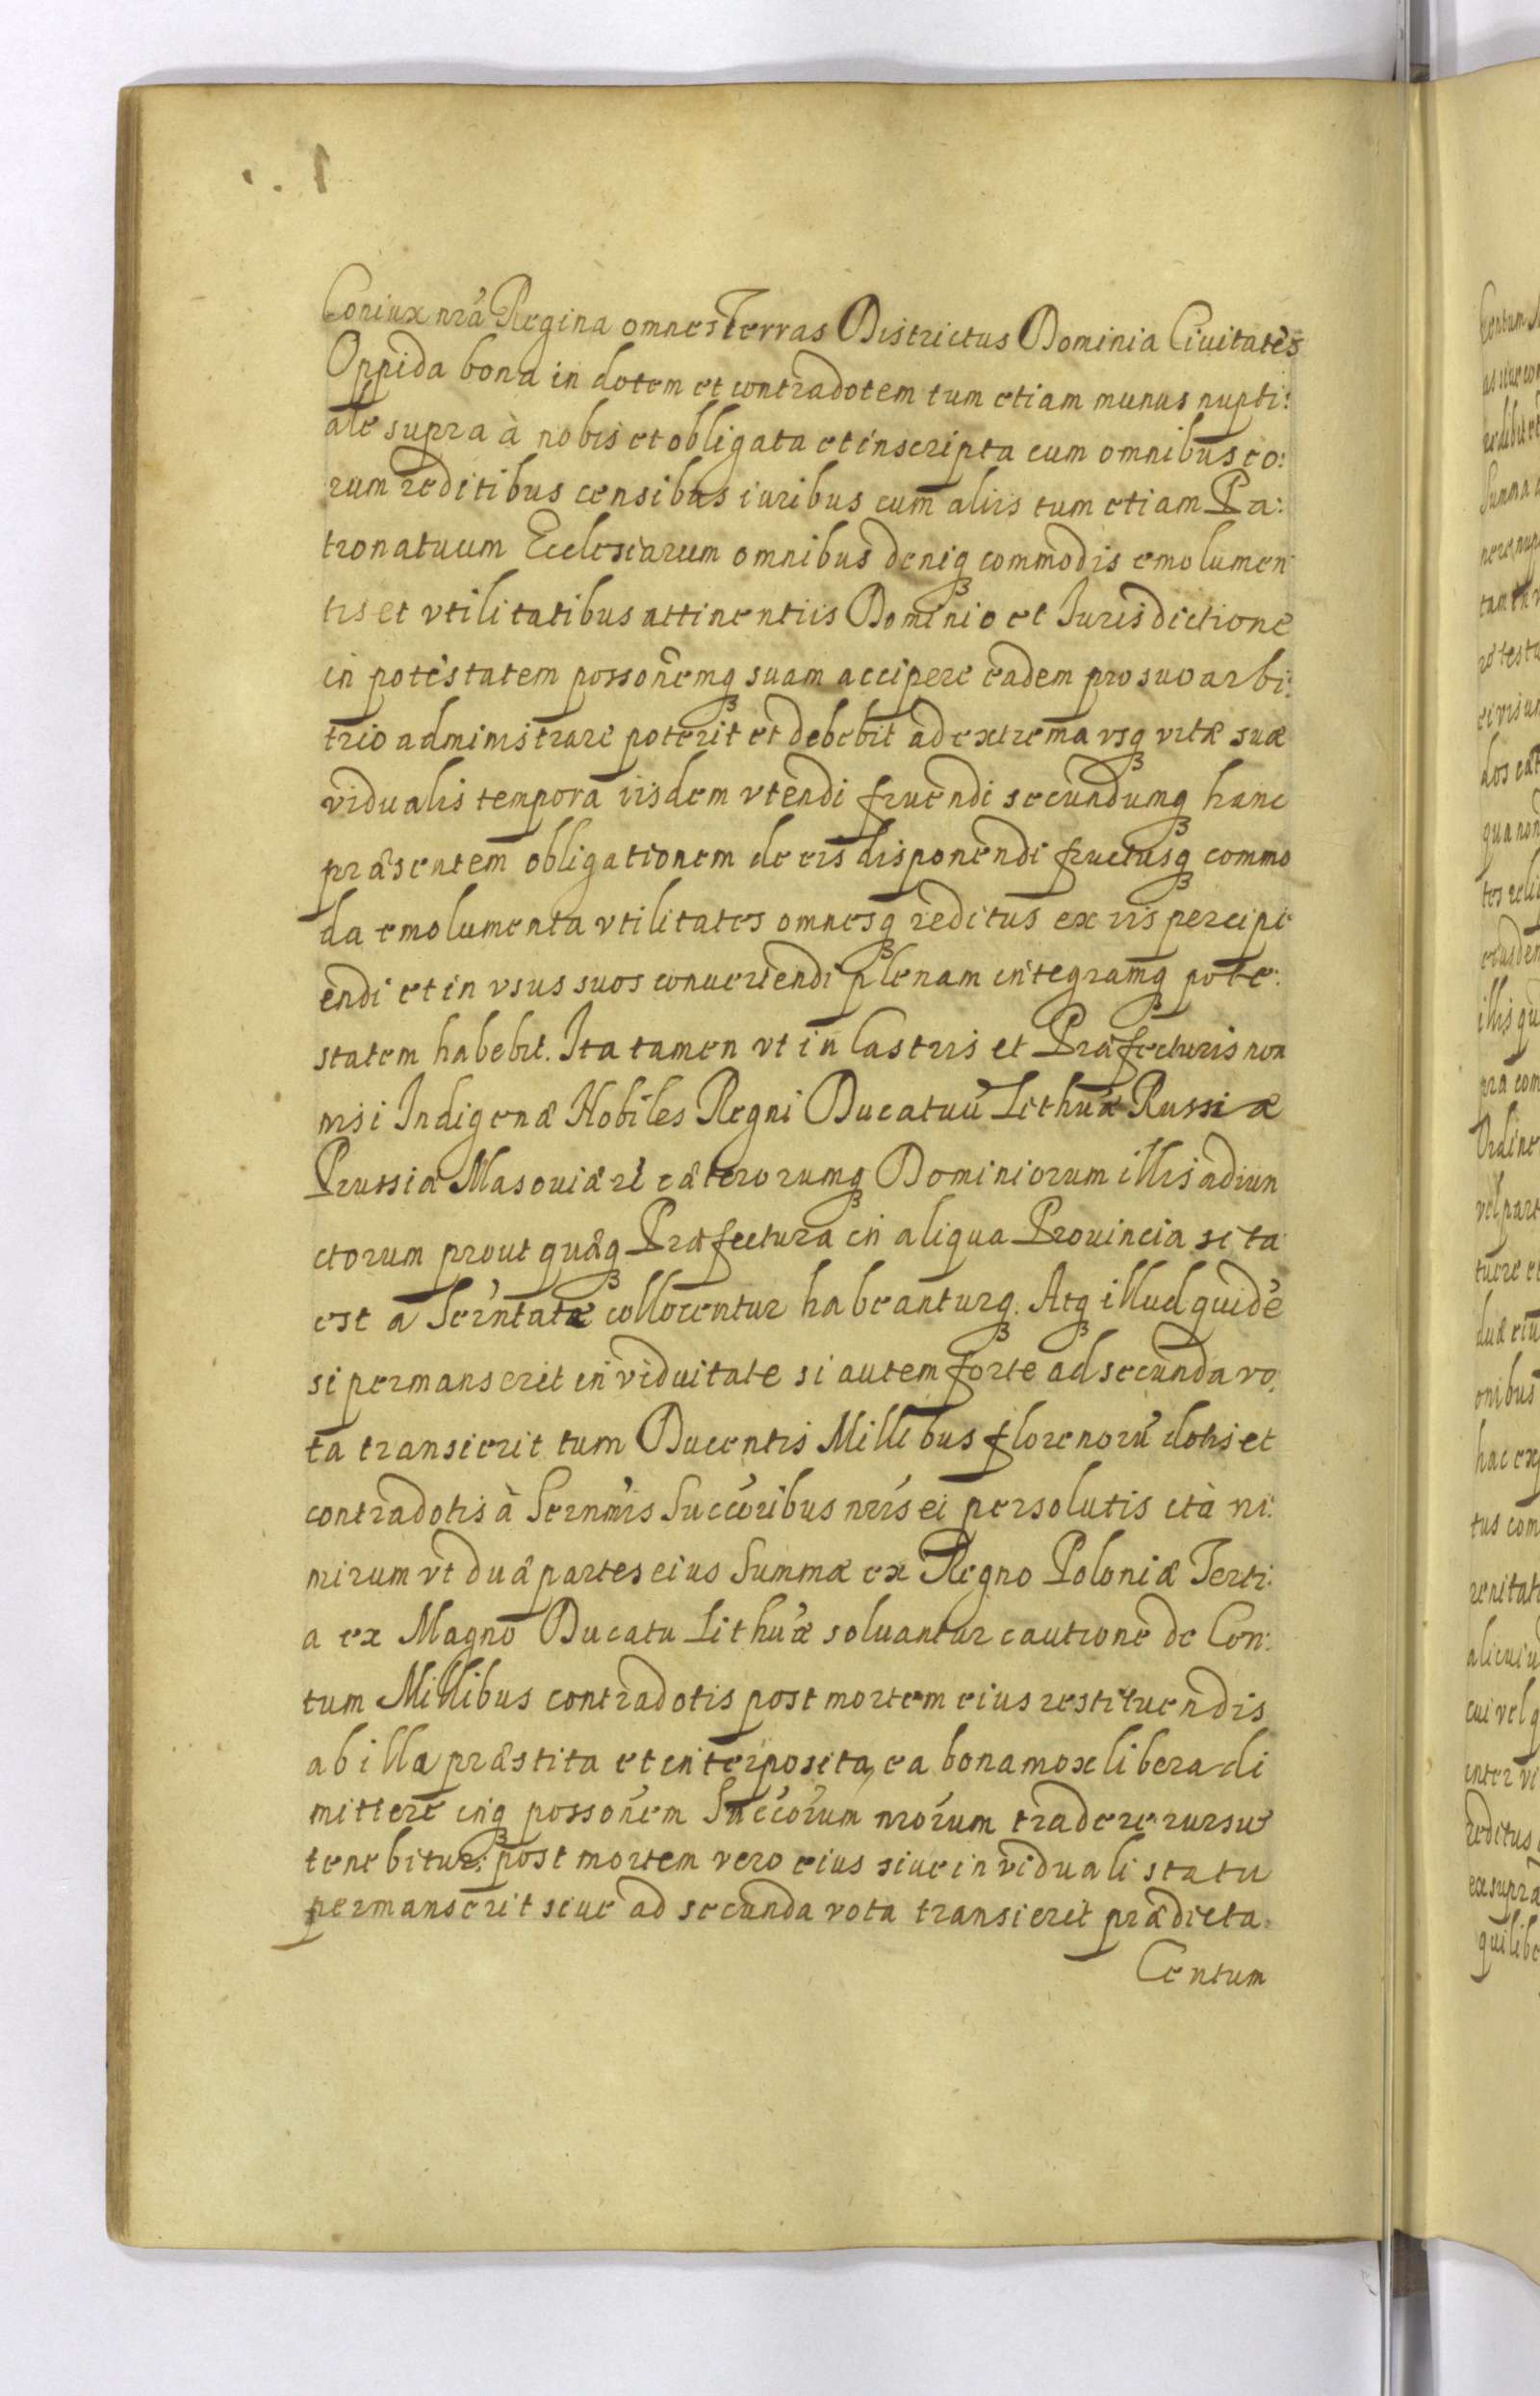 Coniux nrá Regina omnes Terras Districtus Dominia Ciuitates
Oppida bona in dotem et contradotem tum etiam munus nupti:
ale supra à nobis et obligata et inscripta cum omnibus eo:
rum reditibus censibus iuribus cum aliis tum etiam Pa:
tronatuum Ecclesiarum omnibus deniqꝫ commodis emolumen
tis et vtilitatibus attinentiis Dominio et Jurisdictione
in potestatem possonemqꝫ suam accipere eadem pro suo arbi:
trio administrare poterit et debebit ad extrema vsqꝫ vitæ suæ
vidualis tempora iisdem vtendi fruendi secundumqꝫ hanc
præsentem obligationem de eis disponendi fructusqꝫ commo
da emolumenta vtilitates omnesqꝫ reditus ex iis percipi
endi et in vsus suos conuertendi plenam integramqꝫ pote:
statem habebit. Ita tamen vt in Castris et Præfecturis non
nisi Indigenæ Nobiles Regni Ducatuū Lithuæ Russiæ
Prussiæ Masouiæ cæterorumqꝫ Dominiorum illis adiun
ctorum prout quæqꝫ Præfectura in aliqua Prouincia sita
est a Serntate collocentur habeanturqꝫ. Atqꝫ illud quidē
si permanserit in viduitate si autem forte ad secunda vo:
ta transierit tum Ducentis Millibus florenorū dotis et
contradotis à Sernmis Succoribus nris ei persolutis ità ni:
mirum vt duæ partes eius Summæ ex Regno Poloniæ Terti:
a ex Magno Ducatu Lithuæ soluantur cautione de Cen:
tum Millibus contradotis post mortem eius restituendis
ab illa præstita et interposita, ea bona mox libera di
mittere inqꝫ possonem Succorum nrorum tradere rursus
tenebitur: post mortem vero eius siue in viduali statu
permanserit siue ad secunda vota transierit prædicta
Centum